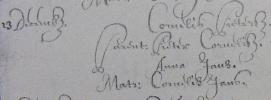 13 Decembr. Cornelis Pieters.
Parent: Pieter Cornelisz.
Anna Jans.
Matr: Cornelis Jans.